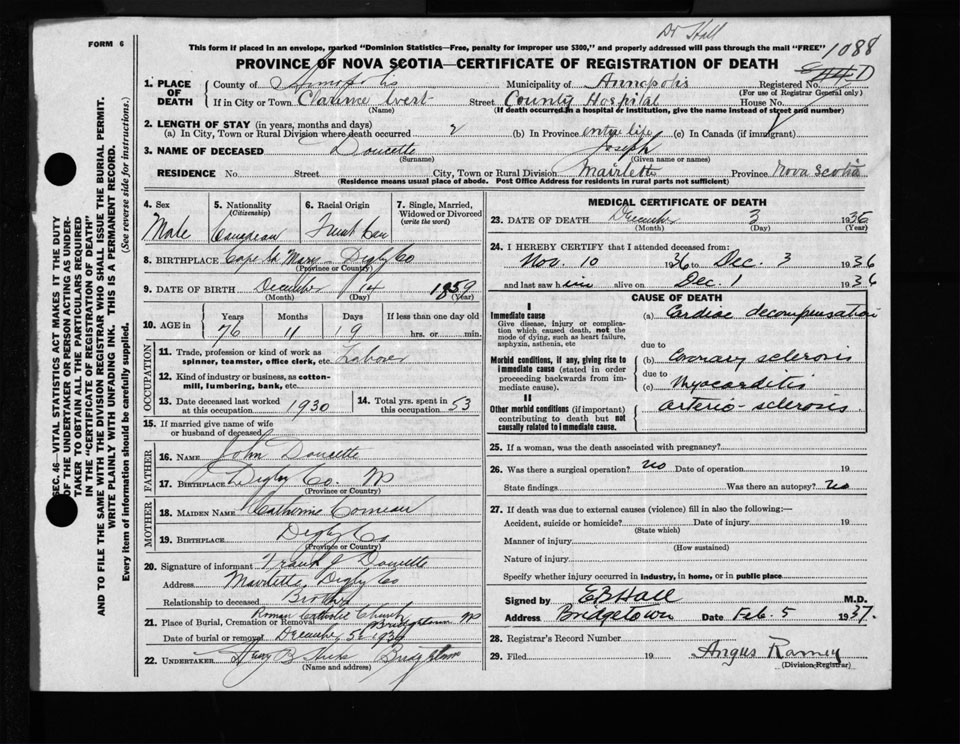 Dr Hall
FORM 6
This form if placed in an envelope, marked "Dominion Statistics—Free, penalty for improper use $300," and properly addressed will pass through the mail "FREE"
1088
PROVINCE OF NOVA SCOTIA—CERTIFICATE OF REGISTRATION OF DEATH
1. PLACE OF DEATH
County of Annapolis Municipality of Annapolis Registered No.
(For use of Registrar General only)
If in City or Town Clarence West Street County Hospital House No.
(If death occurred in a hospital or institution, give the name instead of street and number)
2. LENGTH OF STAY (in years, months and days)
(a) In City, Town or Rural Division where death occurred 2 (b) In Province entire life (c) In Canada (if immigrant)
3. NAME OF DECEASED Doucette Joseph
(Surname) (Given name or names)
RESIDENCE No. Street City, Town or Rural Division Province Nova Scotia
(Residence means usual place of abode. Post Office Address for residents in rural parts not sufficient)
4. Sex Male
5. Nationality (Citizenship) Canadian
6. Racial Origin
7. Single, Married, Widowed or Divorced (write the word)
8. BIRTHPLACE Cape St Mary - Digby Co
(Province or Country)
9. DATE OF BIRTH December 14 1859
(Month) (Day) (Year)
10. AGE in Years Months Days If less than one day old
76 11 19 hrs. or min.
OCCUPATION
11. Trade, profession or kind of work as spinner, teamster, office clerk, etc. Labover
12. Kind of industry or business, as cotton-mill, lumbering, bank, etc.
13. Date deceased last worked at this occupation 1930
14. Total yrs. spent in this occupation 53
15. If married give name of wife or husband of deceased
FATHER
16. NAME John Doucette
17. BIRTHPLACE Digby Co. NS
(Province or Country)
MOTHER
18. MAIDEN NAME Catherine Comeau
19. BIRTHPLACE Digby Co
(Province or Country)
20. Signature of informant Frank J Doucette
Address Digby Co
Relationship to deceased Brother
21. Place of Burial, Cremation or Removal Roman Catholic Church Bridgetown NS
Date of burial or removal December 5th 1936
22. UNDERTAKER Bridgetown
(Name and Address)
MEDICAL CERTIFICATE OF DEATH
23. DATE OF DEATH December 3 1936
(Month) (Day) (Year)
24. I HEREBY CERTIFY that I attended deceased from:
Nov. 10 1936 to Dec. 3 1936
and last saw him alive on Dec. 1 1936
CAUSE OF DEATH
I
Immediate cause
Give disease, injury or complication which caused death, not the mode of dying, such as heart failure, asphyxia, asthenia, etc
(a) Cardiac decompensation
due to
Morbid conditions, if any, giving rise to immediate cause (stated in order proceeding backwards from immediate cause).
(b) Coronary sclerosis
due to
(c) Myocarditis
II
Other morbid conditions (if important) contributing to death but not causally related to immediate cause.
arterio-sclerosis.
25. If a woman, was the death associated with pregnancy?
26. Was there a surgical operation? no Date of operation 19
State findings Was there an autopsy? no
27. If death was due to external causes (violence) fill in also the following:—
Accident, suicide or homicide? Date of injury 19
(State which)
Manner of injury
(How sustained)
Nature of injury
Specify whether injury occurred in industry, in home, or in public place
Signed by EB Hall M.D.
Address Bridgetown Date Feb. 5 1937.
28. Registrar's Record Number
29. Filed 19 Angus Ramey
(Division Registrar)
SEC. 46—VITAL STATISTICS ACT MAKES IT THE DUTY
OF THE UNDERTAKER OR PERSON ACTING AS UNDER-
TAKER TO OBTAIN ALL THE PARTICULARS REQUIRED
IN THE "CERTIFICATE OF REGISTRATION OF DEATH"
AND TO FILE THE SAME WITH THE DIVISION REGISTRAR WHO SHALL ISSUE THE BURIAL PERMIT.
WRITE PLAINLY WITH UNFADING INK. THIS IS A PERMANENT RECORD.
Every item of information should be carefully supplied. (See reverse side for instructions.)